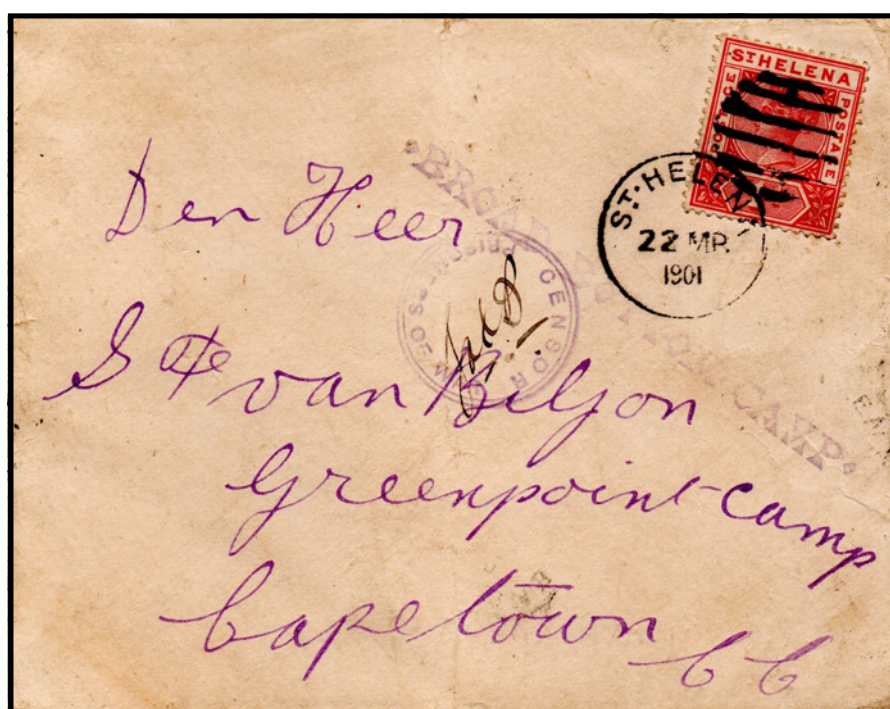 ST HELENA
POSTAGE
POSTAGE
ST. HELEN
22 MR.
1901
BROAD
CAMP
PRISONERS OF WAR
CENSOR
Den Heer
van Biljon
Greenpoint-camp
Capetown CC